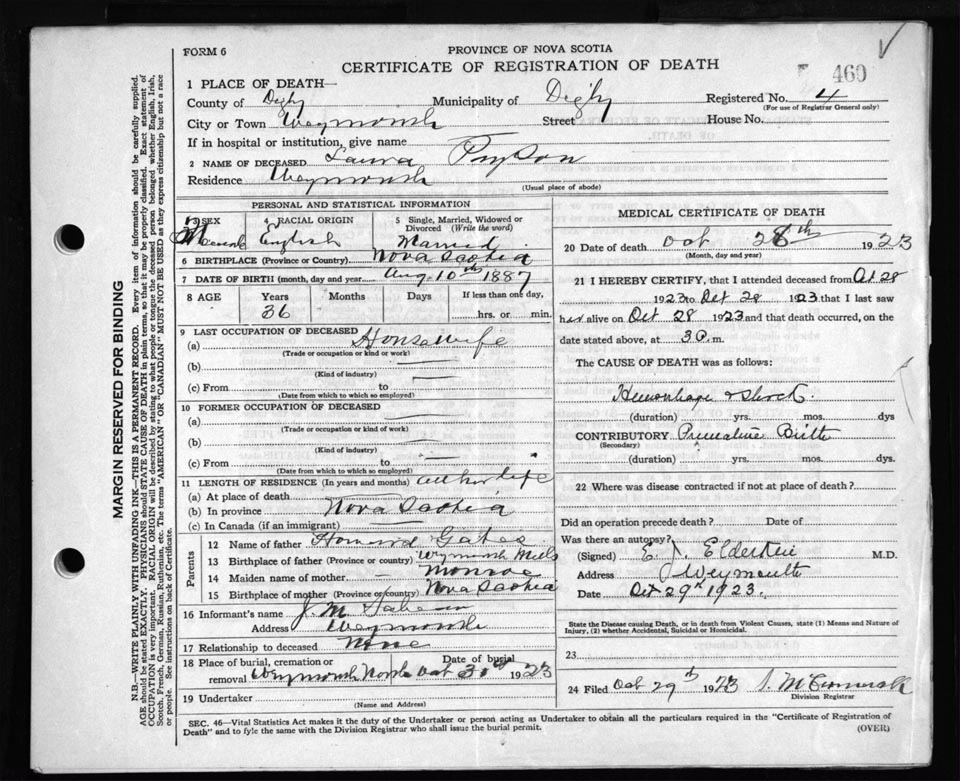 FORM 6
PROVINCE OF NOVA SCOTIA
CERTIFICATE OF REGISTRATION OF DEATH
460
1 PLACE OF DEATH—
County of Digby Municipality of Digby Registered No. 4
(For use of Registrar General only)
City or Town Weymouth Street House No.
If in hospital or institution, give name
2 NAME OF DECEASED Laura
Residence Weymouth
(Usual place of abode)
PERSONAL AND STATISTICAL INFORMATION
3 SEX 4 RACIAL ORIGIN 5 Single, Married, Widowed or Divorced (Write the word)
English Married
6 BIRTHPLACE (Province or Country) Nova Scotia
7 DATE OF BIRTH (month, day and year) Aug 10th 1887
8 AGE Years Months Days If less than one day,
36 hrs. or min.
9 LAST OCCUPATION OF DECEASED
(a) Housewife
(Trade or occupation or kind or work)
(b)
(Kind of industry)
(c) From to
(Date from which to which so employed)
10 FORMER OCCUPATION OF DECEASED
(a)
(Trade or occupation or kind of work)
(b)
(Kind of industry)
(c) From to
(Date from which to which so employed)
11 LENGTH OF RESIDENCE (In years and months) all her life
(a) At place of death
(b) In province Nova Scotia
(c) In Canada (if an immigrant)
Parents
12 Name of father Howard Gates
13 Birthplace of father (Province or country) Weymouth Mills
14 Maiden name of mother Monroe
15 Birthplace of mother (Province or country) Nova Scotia
16 Informant's name J. M.
Address Weymouth
17 Relationship to deceased None
18 Place of burial, cremation or removal Weymouth North Date of burial Oct 30 1923
19 Undertaker
(Name and Address)
MEDICAL CERTIFICATE OF DEATH
20 Date of death Oct 28th 1923
(Month, day and year)
21 I HEREBY CERTIFY, that I attended deceased from Oct 28
1923 to Oct 28 1923 that I last saw
her alive on Oct 28 1923 and that death occurred, on the
date stated above, at 3 P. m.
The CAUSE OF DEATH was as follows:
Hemorrhage & shock
(duration) yrs. mos. dys
CONTRIBUTORY Premature Birth
(Secondary)
(duration) yrs. mos. dys.
22 Where was disease contracted if not at place of death?
Did an operation precede death? Date of
Was there an autopsy?
(Signed) E. M.D.
Address Weymouth
Oct 29th 1923.
State the Disease causing Death, or in death from Violent Causes, state (1) Means and Nature of Injury, (2) whether Accidental, Suicidal or Homicidal.
23
24 Filed Oct 29th 1923
Division Registrar
SEC. 46—Vital Statistics Act makes it the duty of the Undertaker or person acting as Undertaker to obtain all the particulars required in the "Certificate of Registration of
Death" and to fyle the same with the Division Registrar who shall issue the burial permit. (OVER)
MARGIN RESERVED FOR BINDING
N.B.—WRITE PLAINLY WITH UNFADING INK—THIS IS A PERMANENT RECORD. Every item of information should be carefully supplied.
AGE should be stated EXACTLY. PHYSICIANS should STATE CAUSE OF DEATH in plain terms, so that it may be properly classified. Exact statement of
OCCUPATION is very important. RACIAL ORIGIN will be described by stating to what people or tongue the deceased person belonged whether English, Irish,
Scotch, French, German, Russian, Ruthenian, etc. The terms "AMERICAN" OR "CANADIAN" MUST NOT BE USED as they express citizenship but not a race
of people. See instructions on back of Certificate.